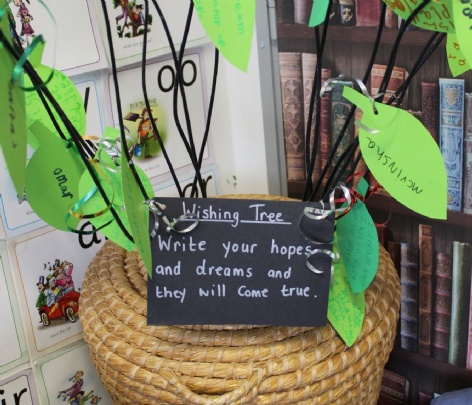 Wishing Tree
Write your hopes
and dreams and
they will come true.
omar
Mcvinisha
oo
ir